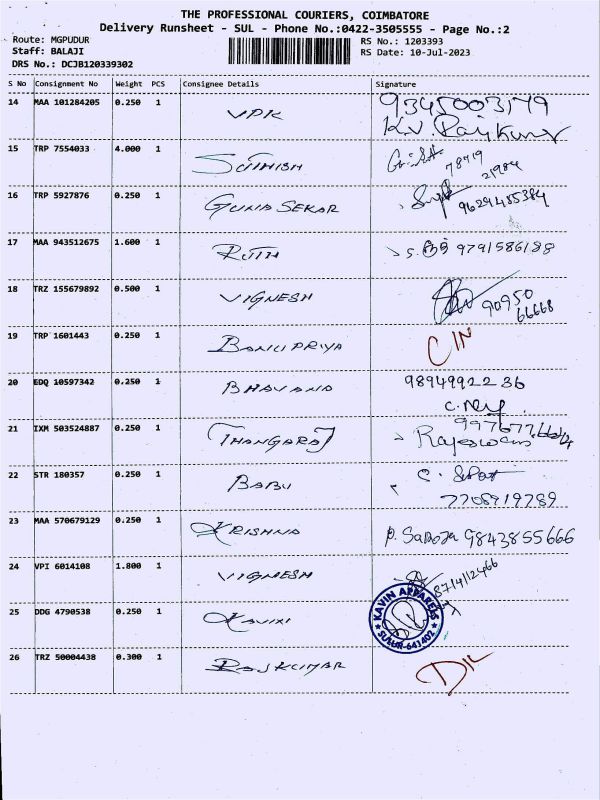 THE PROFESSIONAL COURIERS, COIMBATORE
Delivery Runsheet - SUL - Phone No.:0422-3505555 - Page No.:2
Route: MGPUDUR
Staff: BALAJI
DRS No.: DCJB120339302
RS No.: 1203393
RS Date: 10-Jul-2023
S No Consignment No Weight PCS Consignee Details Signature
14 MAA 101284205 0.250 1 VPK 9345003179
K.V. Rajkumar
15 TRP 7554033 4.000 1 SUTHISH 78719
21984
16 TRP 5927876 0.250 1 GUNA SEKAR 9629485384
17 MAA 943512675 1.600 1 RUTH 9791586188
18 TRZ 155679892 0.500 1 VIGNESH 90950
66668
19 TRP 1601443 0.250 1 BANUPRIYA C/N
20 EDQ 10597342 0.250 1 BHAVANA 9894992236
21 IXM 503524887 0.250 1 THANGARAJ Rajeswari
22 STR 180357 0.250 1 BABU
7708919789
23 MAA 570679129 0.250 1 KRISHNA P. Saroja 9843855666
24 VPI 6014108 1.800 1 VIGNESH 8714112466
25 DDG 4790538 0.250 1 KAVIN KAVIN APPARELS
SULUR-641402
26 TRZ 50004438 0.300 1 RAJKUMAR D/L